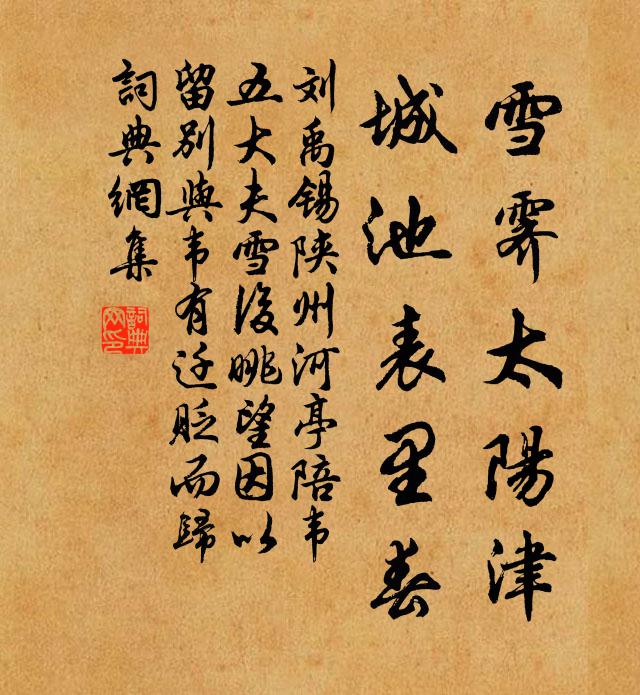 雪霽太陽津
城池表里春
刘禹锡陕州河亭陪韦
五大夫雪後眺望因以
留别與韦有迁貶而歸
詞典網集
詞典
网印